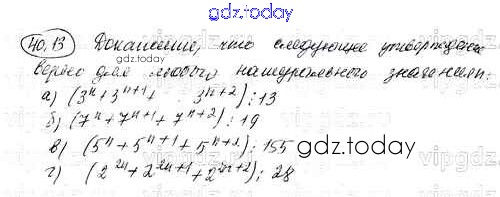 gdz.today
40.13 Докажите, что следующее утверждение
верно для любого натурального значения:
а) (3ⁿ + 3ⁿ⁺¹ + 3ⁿ⁺²) ⋮ 13
б) (7ⁿ + 7ⁿ⁺¹ + 7ⁿ⁺²) ⋮ 19
в) (5ⁿ + 5ⁿ⁺¹ + 5ⁿ⁺²) ⋮ 155
gdz.today
г) (2²ⁿ + 2²ⁿ⁺¹ + 2²ⁿ⁺²) ⋮ 28